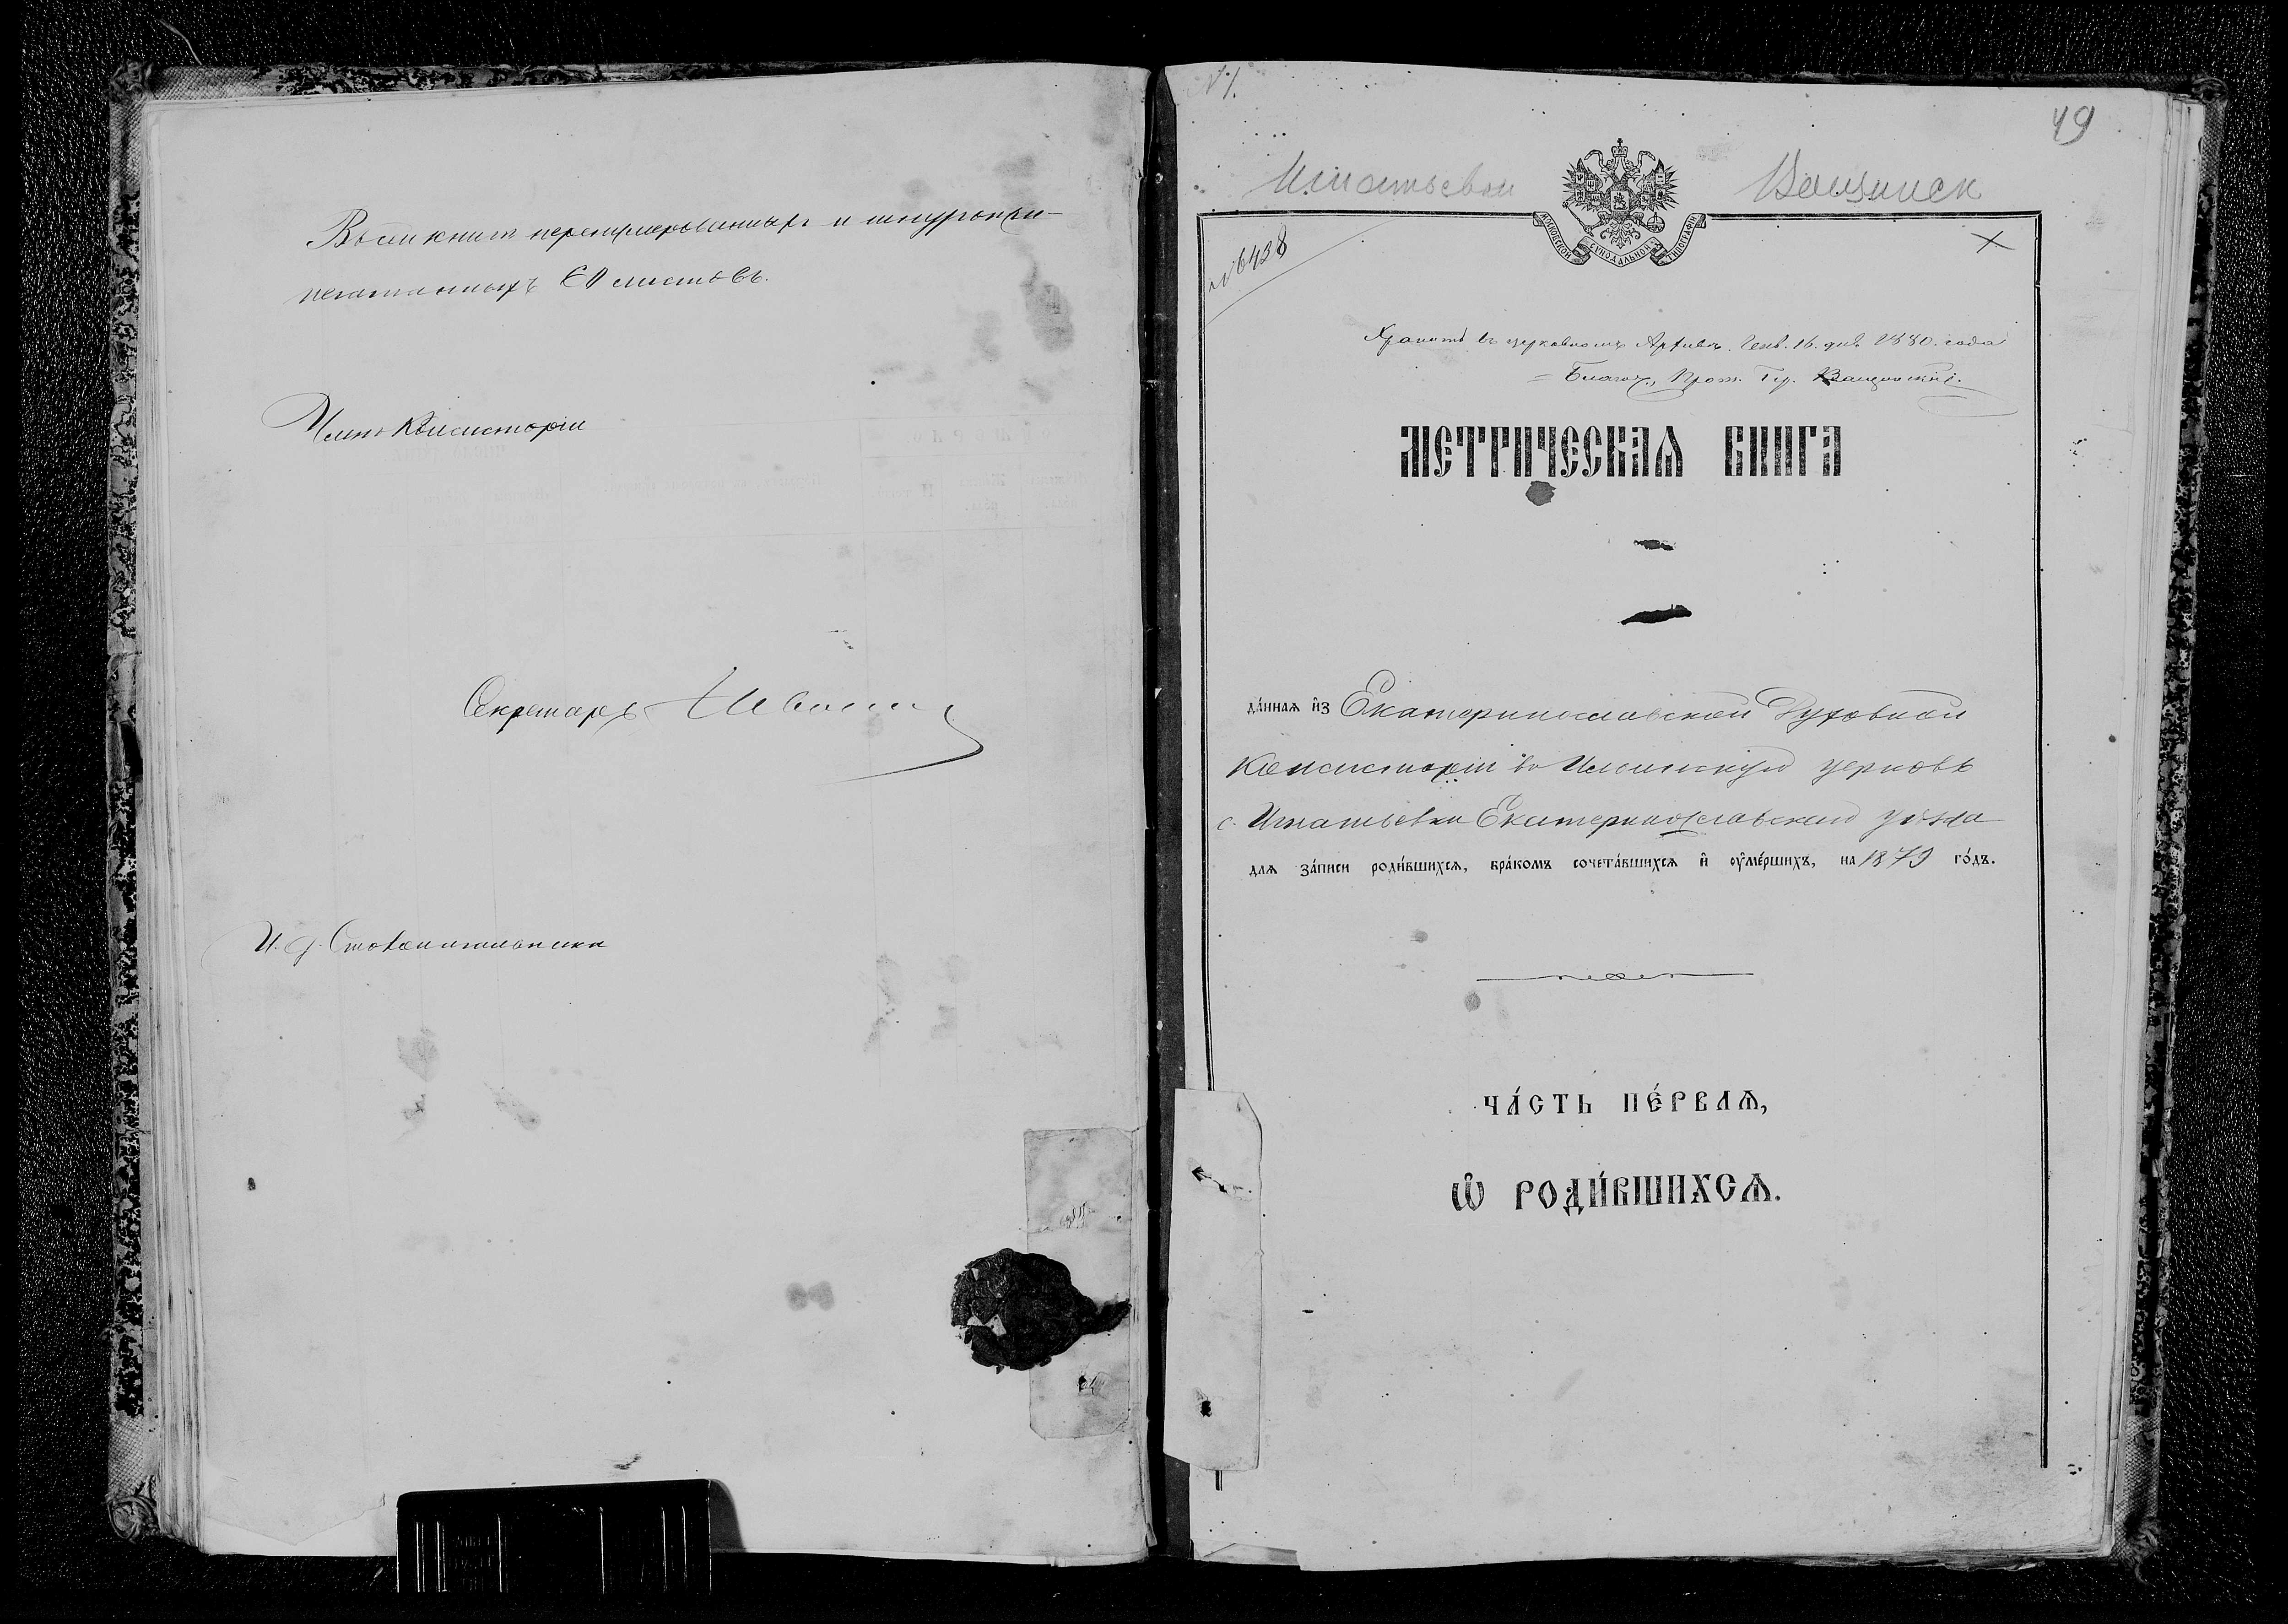 Въ сей книгѣ перенумерованныхъ и шнуропри-
печатанныхъ листовъ.
Членъ Консисторіи
Секретарь
И. д. Столоначальника
№ 1.
49
Игнатьевки
МОСКОВСКОЙ СѴНОДАЛЬНОЙ ТИПОГРАФІИ
№ 6428
Хранить въ церковномъ Архивѣ. Генв. 16. дня 1880. года
Благоч., Прот. Гр.
МЕТРИЧЕСКАѦ КНИГА
да́ннаѧ и҆з Екатеринославской Духовной
Консисторіи въ Ильинскую церковь
с. Игнатьевки Екатеринославскаго уѣзда
длѧ за́писи роди́вшихсѧ, бра́комъ сочета́вшихсѧ и҆ ᲂу҆ме́ршихъ, на 1879 го́дъ.
ЧА́СТЬ ПЕ́РВАѦ,
Ѡ҆ РОДИ́ВШИХСѦ.